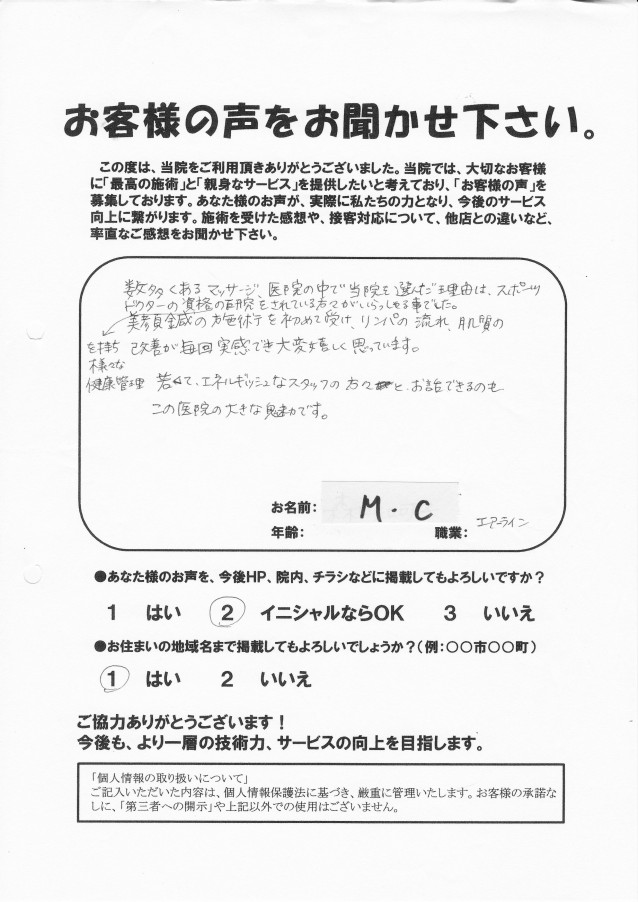 お客様の声をお聞かせ下さい。
この度は、当院をご利用頂きありがとうございました。当院では、大切なお客様
に「最高の施術」と「親身なサービス」を提供したいと考えており、「お客様の声」を
募集しております。あなた様のお声が、実際に私たちの力となり、今後のサービス
向上に繋がります。施術を受けた感想や、接客対応について、他店との違いなど、
率直なご感想をお聞かせ下さい。
数多くあるマッサージ、医院の中で当院を選んだ理由は、スポーツ
ドクターの資格の研究をされている方々がいらっしゃる事でした。
美顔金鍼の施術を初めて受け、リンパの流れ、肌質の
を持ち 改善が毎回実感でき大変嬉しく思っています。
様々な
健康管理 若くて、エネルギッシュなスタッフの方々と、お話できるのも
この医院の大きな魅力です。
お名前: M・C
年齢: 職業: エアーライン
●あなた様のお声を、今後HP、院内、チラシなどに掲載してもよろしいですか?
1 はい 2 イニシャルならOK 3 いいえ
●お住まいの地域名まで掲載してもよろしいでしょうか?(例:〇〇市〇〇町)
1 はい 2 いいえ
ご協力ありがとうございます!
今後も、より一層の技術力、サービスの向上を目指します。
「個人情報の取り扱いについて」
ご記入いただいた内容は、個人情報保護法に基づき、厳重に管理いたします。お客様の承諾な
しに、「第三者への開示」や上記以外での使用はございません。